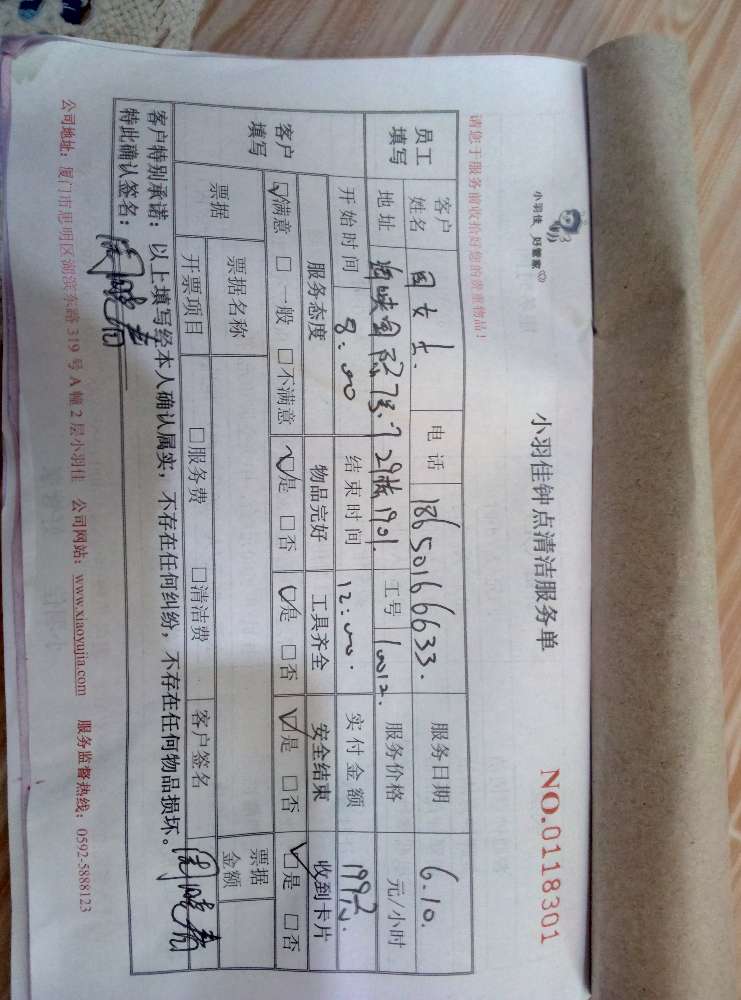 小羽佳 好管家
小羽佳钟点清洁服务单
NO.0118301
请您于服务前收拾好您的贵重物品!
员工填写 客户姓名 女士. 电话 18650166633. 服务日期 6.10.
地址 29栋1901. 工号 10012. 服务价格 元/小时
开始时间 8:00 结束时间 12:00. 实付金额
客户填写 服务态度 物品完好 工具齐全 安全结束 收到卡片
☑满意 □一般 □不满意 ☑是 □否 ☑是 □否 ☑是 □否 ☑是 □否
票据 票据名称 票据金额
开票项目 □服务费 □清洁费 客户签名
客户特别承诺:以上填写经本人确认属实,不存在任何纠纷,不存在任何物品损坏。
特此确认签名:
公司地址:厦门市思明区湖滨东路319号A幢2层小羽佳 公司网站:www.xiaoyujia.com 服务监督热线:0592-5888123